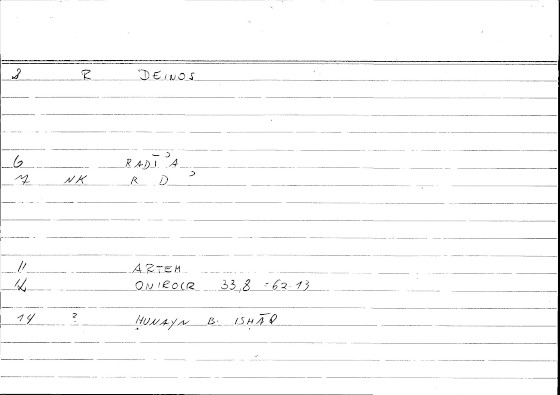 8 R DEINOS
6 RADĪʾA
7 NK R D ʾ
11 ARTEM
12 ONIROCR 33,8 = 62.13
14 ? ḤUNAYN B. ISḤĀQ